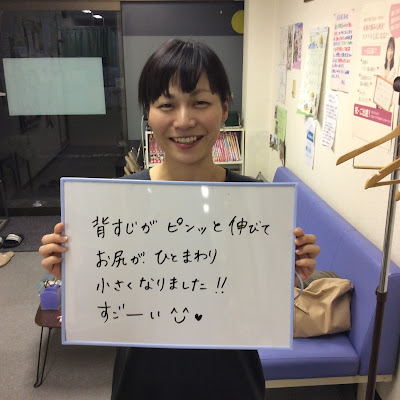 背すじが ピンッと 伸びて
お尻が ひとまわり
小さくなりました!!
すごーい ^^♥